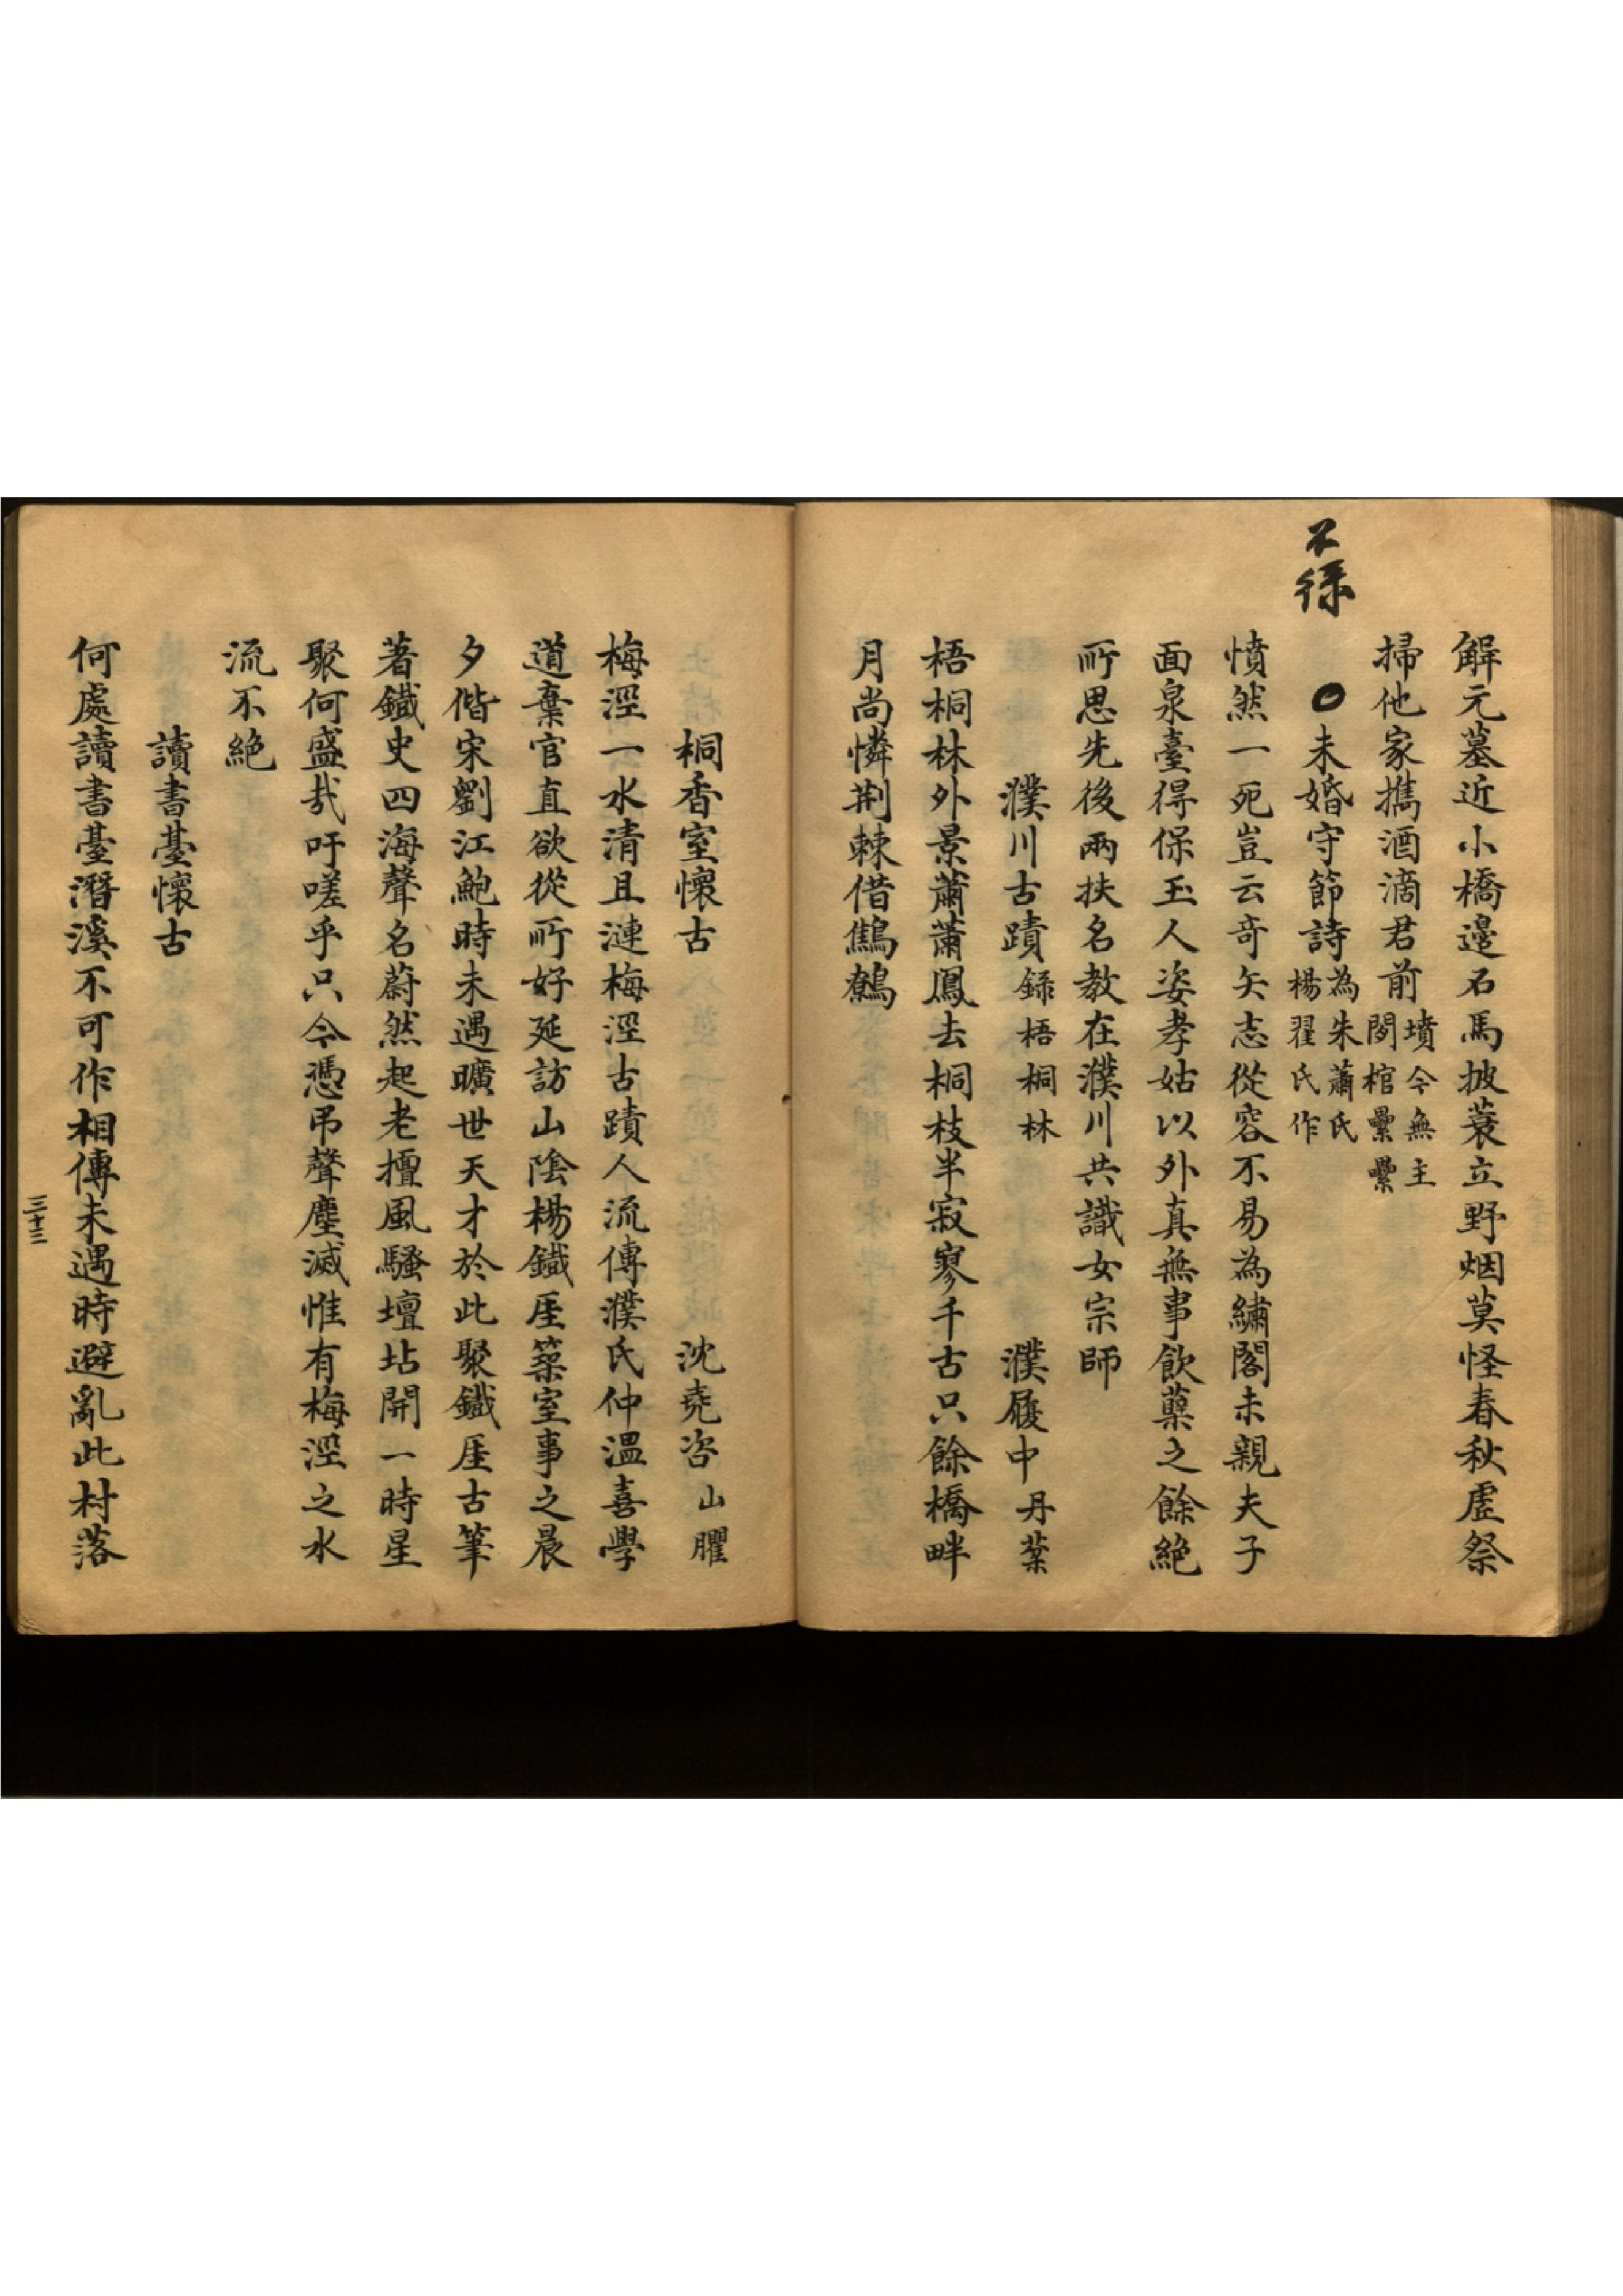 解元墓近小橋邊石馬披蓑立野烟莫怪春秋虛祭
掃他家擕酒滴君前墳今無主閔棺纍纍
不
未婚守節詩為朱蕭氏楊翟氏作
憤然一死豈云奇矢志從容不易為繡閣未親夫子
面泉臺得保玉人姿孝姑以外真無事飲蘗之餘絕
所思先後兩扶名教在濮川共識女宗師
濮川古蹟錄梧桐林 濮履中丹葉
梧桐林外景蕭蕭鳳去桐枝半寂寥千古只餘橋畔
月尚憐荆棘借鷦鷯
桐香室懷古 沈堯咨山臞
梅涇一水清且漣梅涇古蹟人流傳濮氏仲溫喜學
道棄官直欲從所好延訪山陰楊鐵厓築室事之晨
夕偕宋劉江鮑時未遇曠世天才於此聚鐵厓古筆
著鐵史四海聲名蔚然起老擅風騷壇坫開一時星
聚何盛哉吁嗟乎只今憑弔聲塵滅惟有梅涇之水
流不絕
讀書臺懷古
何處讀書臺潛溪不可作相傳未遇時避亂此村落
三十三